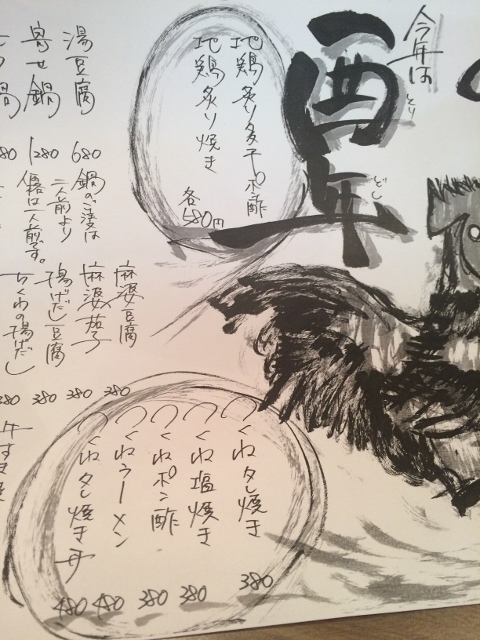 今年は
酉年
とり
どし
地鶏炙り多子ポン酢
地鶏炙り焼き
各580円
湯豆腐 680
寄せ鍋 1280
鍋のご注文は
二人前より
価格は一人前です。
麻婆豆腐 380
麻婆茄子 380
揚げだし豆腐 380
ちくわの揚げだし 380
つくねタレ焼き 380
つくね塩焼き 380
つくねポン酢 380
つくねラーメン 480
つくねタレ焼き 480